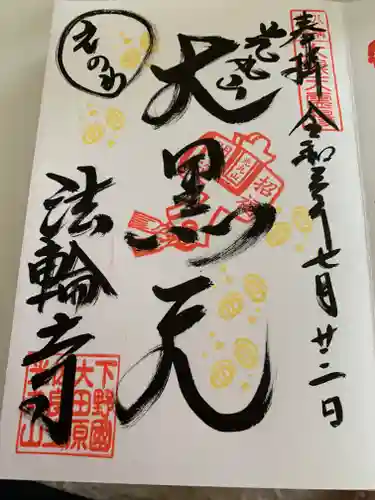 奉拝 令和三年七月廿二日
光丸山
大黒天
えのき
法輪寺
下野国
大田原
光丸山
招福